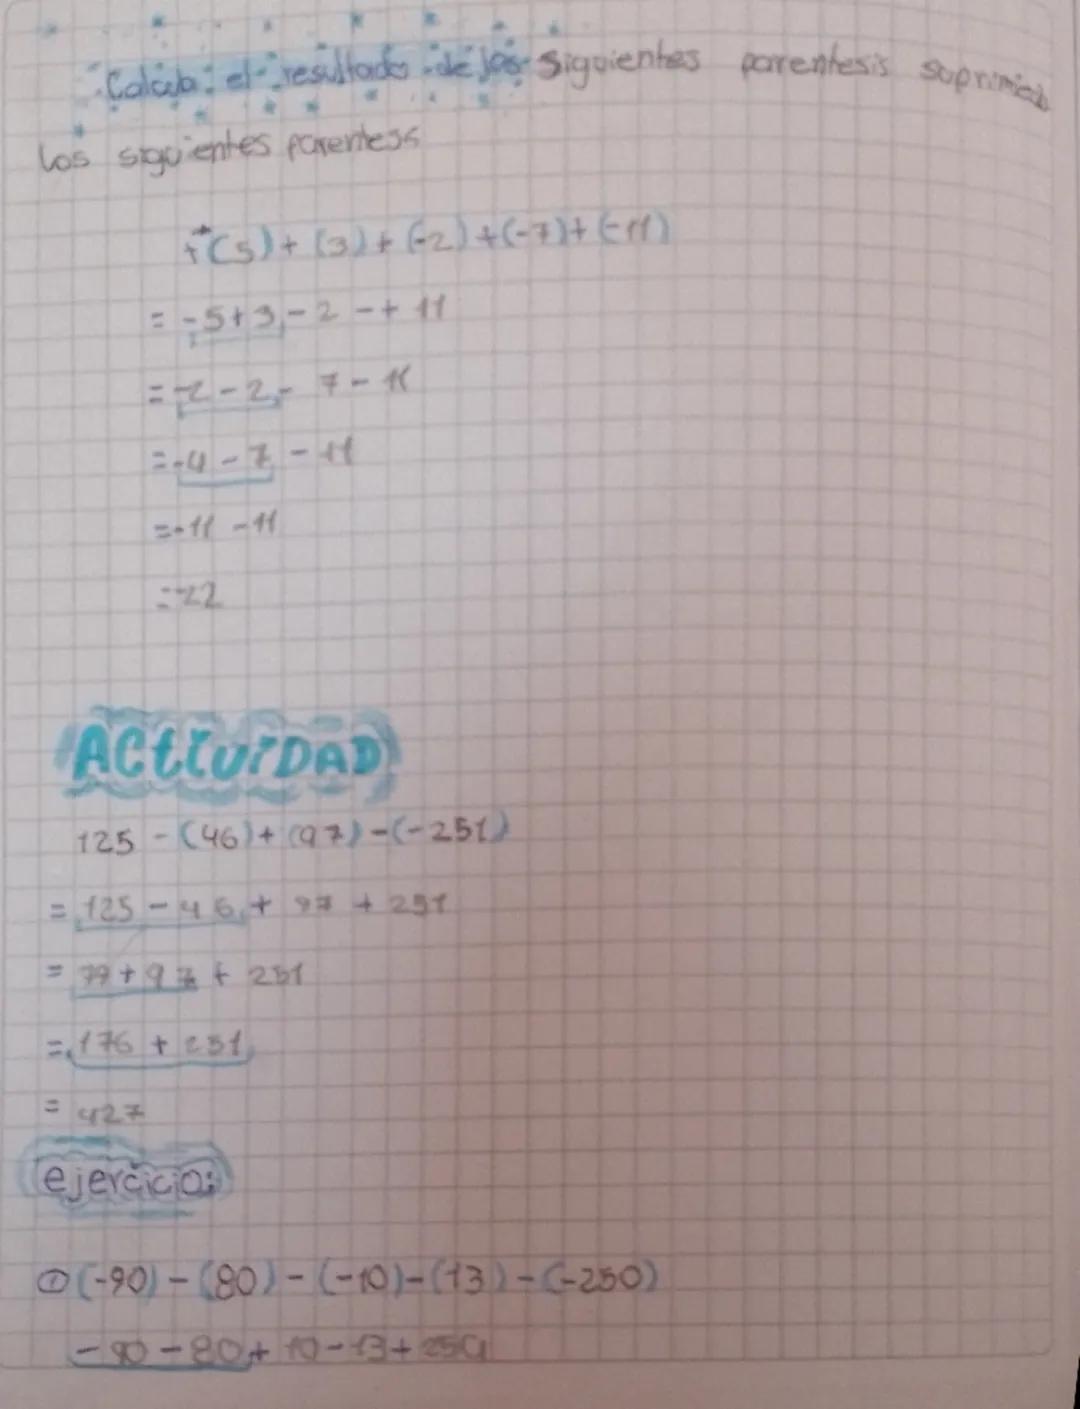 Calcula: el resultado de los siguientes parentesis suprimiendo
los siguientes parentess
+(5)+(3)+(-2)+(-7)+(-11)
=-5+3-2-+11
=-2-2-7-11
=-4-7-11
=-11-11
=-22
ACtiviDAD
125-(46)+(97)-(-251)
=125-46+97+251
=79+97+251
=176+251
=427
ejercicio:
①(-90)-(80)-(-10)-(13)-(-250)
-90-80+10-13+250